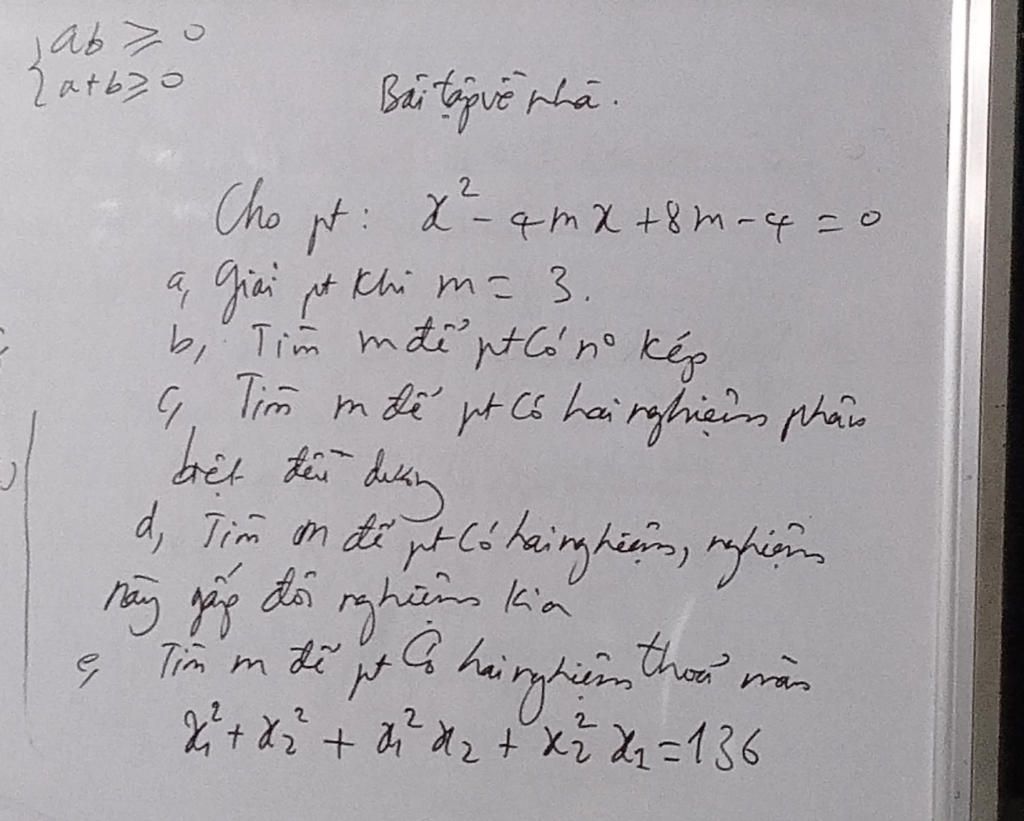 ab ≥ 0
a+b ≥ 0
Bài tập về nhà.
Cho pt: x² - 4mx + 8m - 4 = 0
a, Giải pt khi m = 3.
b, Tìm m để pt có nº kép
c, Tìm m để pt có hai nghiệm phân
biệt đều dương
d, Tìm m để pt có hai nghiệm, nghiệm
này gấp đôi nghiệm kia
e, Tìm m để pt có hai nghiệm thoả mãn
x₁² + x₂² + x₁² x₂ + x₂² x₁ = 136